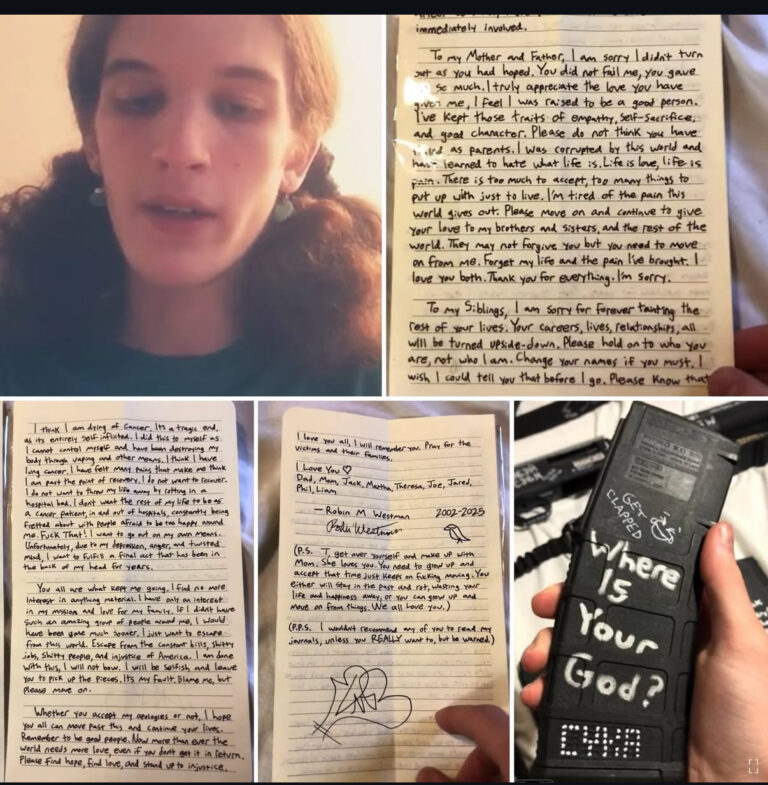 immediately involved.
To my Mother and Father, I am sorry I didn't turn
out as you had hoped. You did not fail me, you gave
so much. I truly appreciate the love you have
given me, I feel I was raised to be a good person.
I've kept those traits of empathy, self-sacrifice,
and good character. Please do not think you have
failed as parents. I was corrupted by this world and
have learned to hate what life is. Life is love, life is
pain. There is too much to accept, too many things to
put up with just to live. I'm tired of the pain this
world gives out. Please move on and continue to give
your love to my brothers and sisters, and the rest of the
world. They may not forgive you but you need to move
on from me. Forget my life and the pain I've brought. I
love you both. Thank you for everything. I'm sorry.
To my Siblings, I am sorry for forever tainting the
rest of your lives. Your careers, lives, relationships, all
will be turned upside-down. Please hold on to who you
are, not who I am. Change your names if you must. I
wish I could tell you that before I go. Please know that
I think I am dying of cancer. Its a tragic end,
as its entirely self inflicted. I did this to myself as
I cannot control myself and have been destroying my
body through vaping and other means. I think I have
lung cancer. I have felt many pains that make me think
I am past the point of recovery. I do not want to recover.
I do not want to throw my life away by rotting in a
hospital bed. I don't want the rest of my life to be as
a cancer patient, in and out of hospitals, constantly being
fretted about with people afraid to be too happy around
me. Fuck That! I want to go out on my own means.
Unfortunately, due to my depression, anger, and twisted
mind, I want to fulfill a final act that has been in
the back of my head for years.
You all are what kept me going. I find no more
interest in anything material. I have only an interest
in my mission and love for my family. If I didn't have
such an amazing group of people around me, I would
have been gone much sooner. I just want to escape
from this world. Escape from the constant bills, shitty
jobs, shitty people, and injustice of America. I am done
with this, I will not bow. I will be selfish and leave
you to pick up the pieces. Its my fault. Blame me, but
please move on.
Whether you accept my apologies or not, I hope
you all can move past this and continue your lives.
Remember to be good people. Now more than ever the
world needs more love, even if you don't get it in return.
Please find hope, find love, and stand up to injustice.
I love you all, I will remember you. Pray for the
victims and their families.
I Love You ♡
Dad, Mom, Jack, Martha, Theresa, Joe, Jared,
Phil, Liam
— Robin M Westman 2002-2025
Robin Westman
(P.S. T, get over yourself and make up with
Mom. She loves you. You need to grow up and
accept that time just keeps on fucking moving. You
either will stay in the past and rot, wasting your
life and happiness away, or you can grow up and
move on from things. We all love you.)
(P.P.S. I wouldn't recommend any of you to read my
journals, unless you REALLY want to, but be warned.)
GET
CLAPPED
Where
Is
Your
God?
СУКА